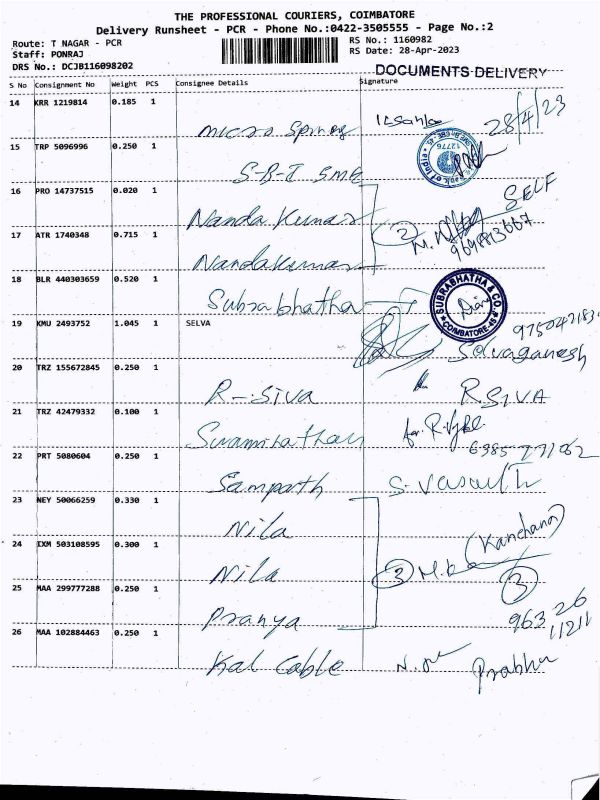 THE PROFESSIONAL COURIERS, COIMBATORE
Delivery Runsheet - PCR - Phone No.:0422-3505555 - Page No.:2
Route: T NAGAR - PCR
RS No.: 1160982
Staff: PONRAJ
RS Date: 28-Apr-2023
DRS No.: DCJB116098202
DOCUMENTS DELIVERY
S No Consignment No Weight PCS Consignee Details Signature
14 KRR 1219814 0.185 1
28/4/23
micro Spring
15 TRP 5096996 0.250 1
12776
S-B-I SME
16 PRO 14737515 0.020 1
SELF
Nanda Kumar
2
17 ATR 1740348 0.715 1
Nandakumar
18 BLR 440303659 0.520 1
Subrabhatha
SUBRABHATHA & CO.
COIMBATORE-45
19 KMU 2493752 1.045 1 SELVA
Selvaganesh
20 TRZ 155672845 0.250 1
R-Siva
R.SIVA
21 TRZ 42479332 0.100 1
Swaminathan
22 PRT 5080604 0.250 1
Sampath
S. Vasanth
23 NEY 50066259 0.330 1
Nila
(Kanchana)
24 IXM 503108595 0.300 1
Nila
3
3
25 MAA 299777288 0.250 1
Pranya
963 26
11211
26 MAA 102884463 0.250 1
Kal Cable
Prabhu